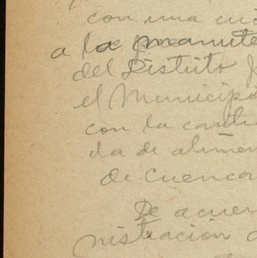 con una cu
a la manute
del Distrito
el Municip
con la canti
da de alimen
de Cuenca
De acuer
nistracion